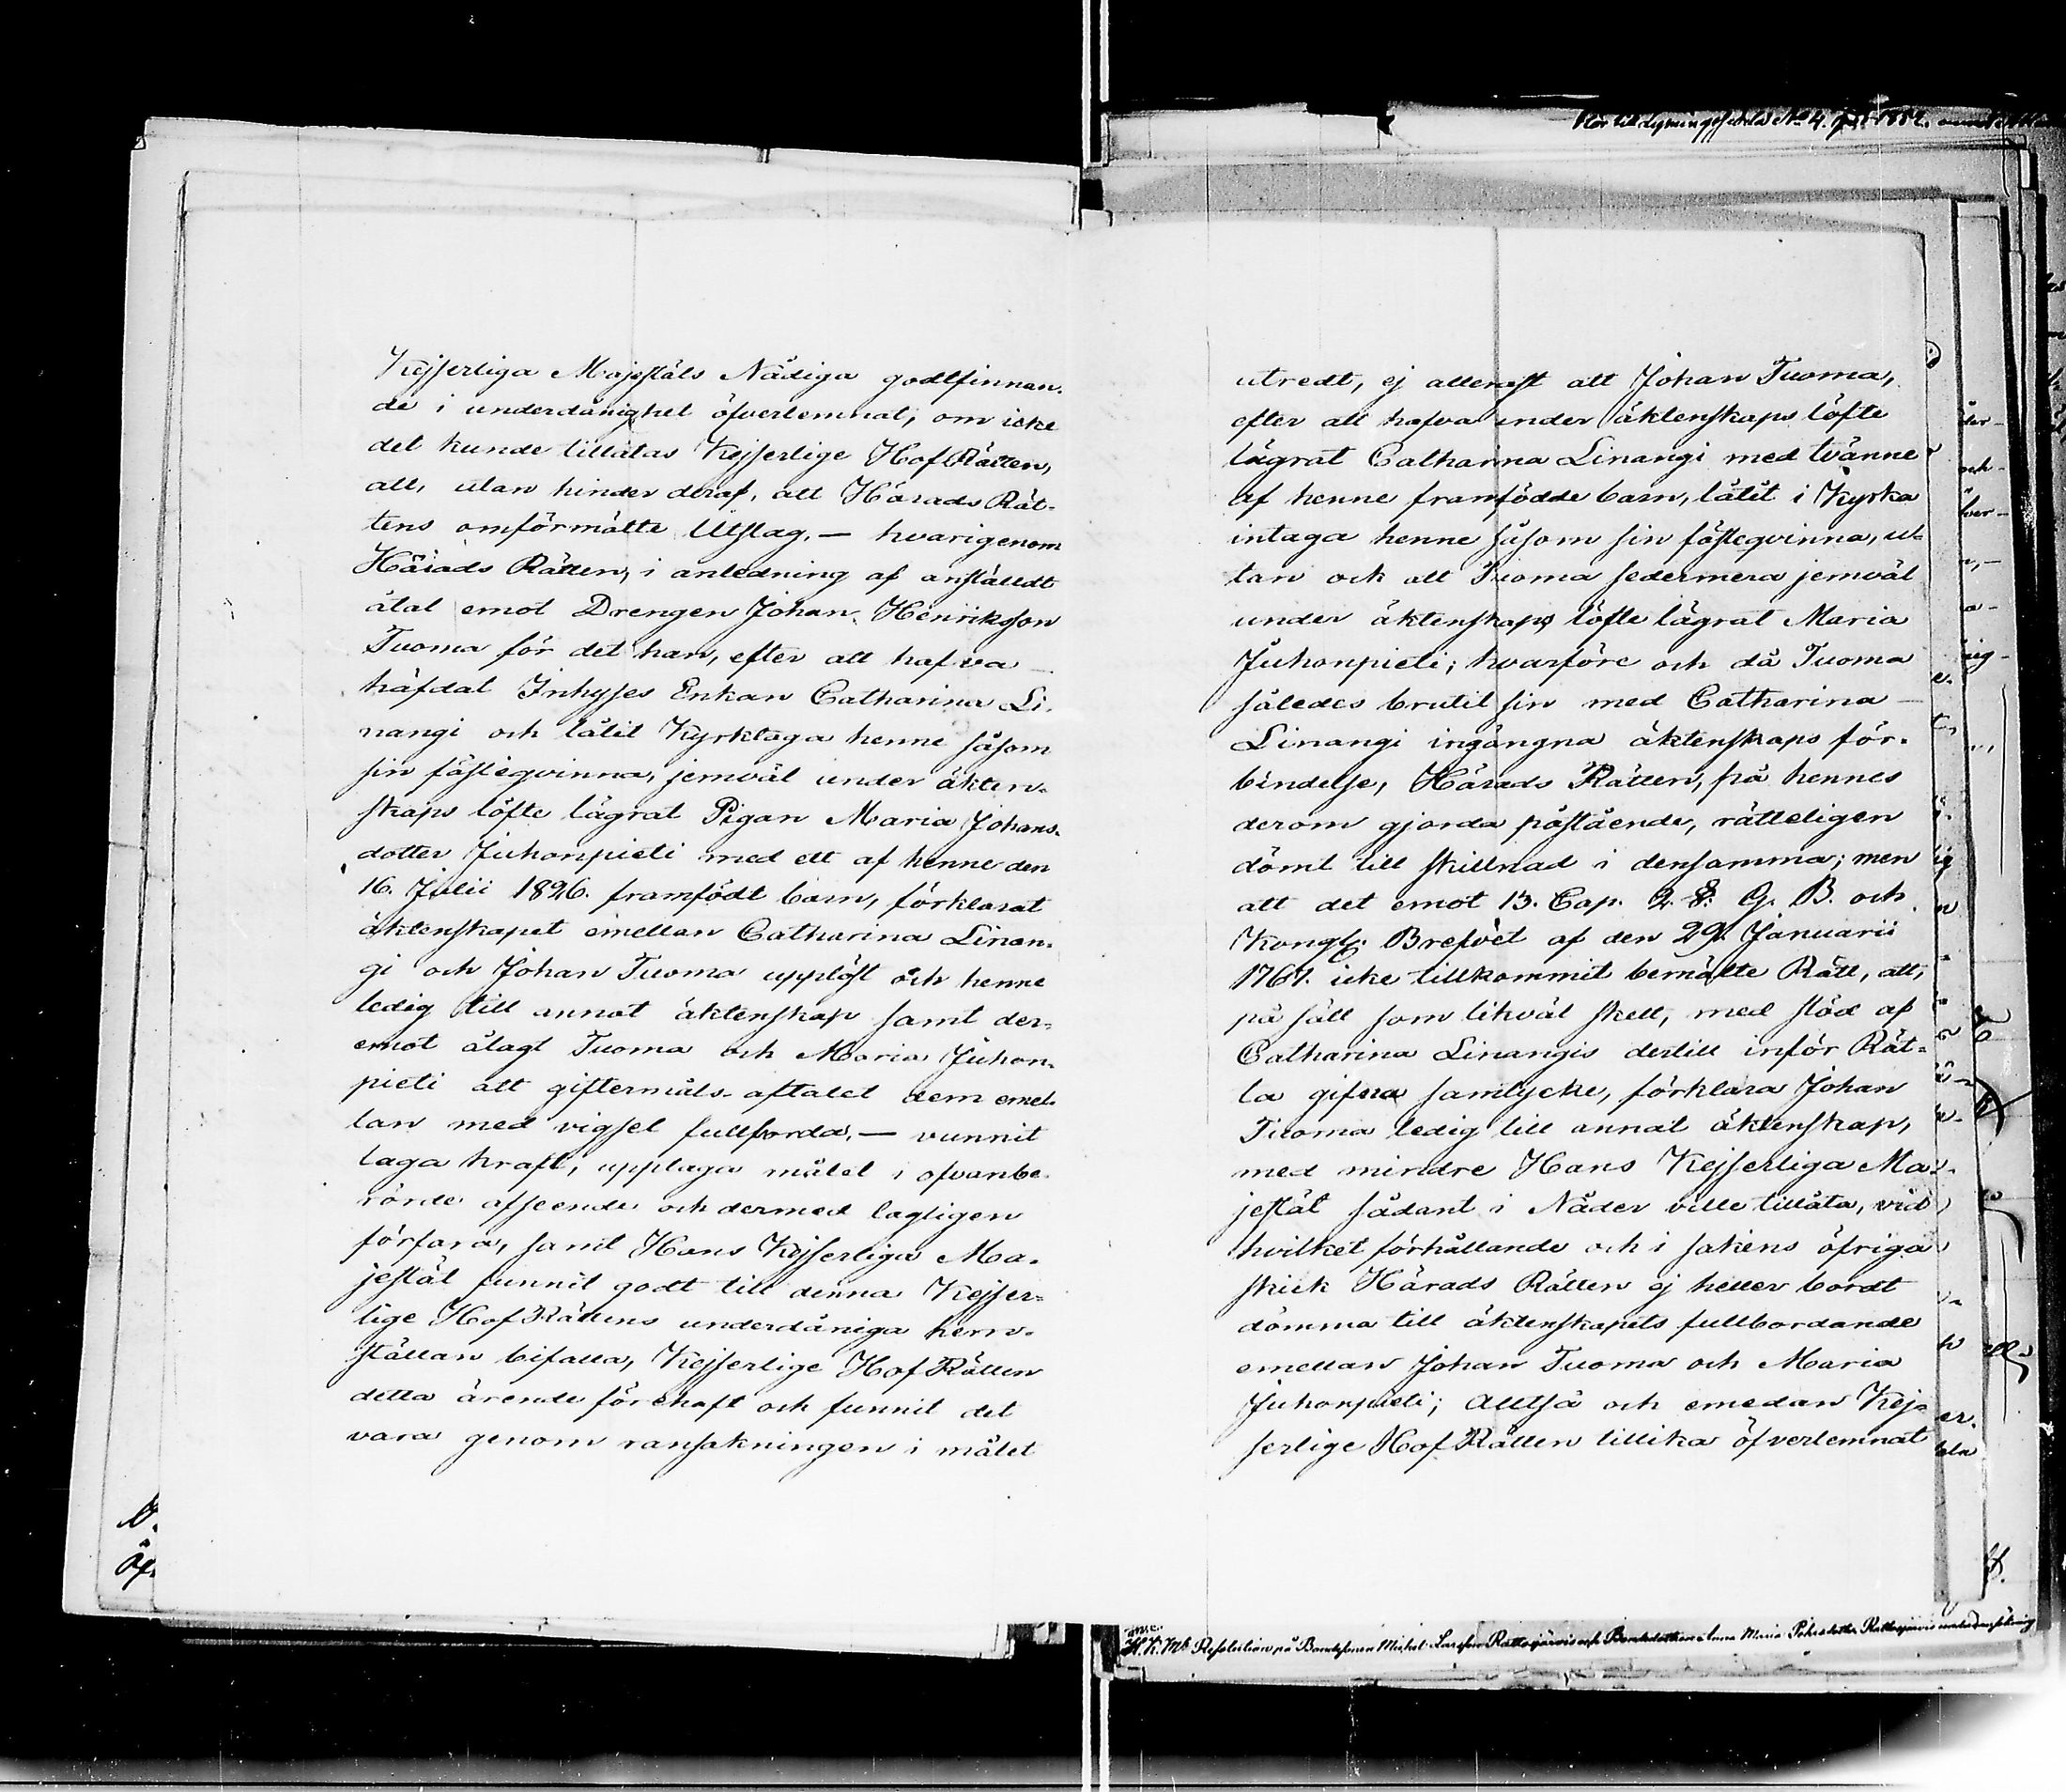 Kejserliga Majestäts Nådiga godtfinnan-
de i underdånighet öfverlemnat, om icke
det kunde tillåtas Kejserlige HofRätten,
att, utan hinder deraf, att HäradsRät-
tens omförmälte Utslag, — hvarigenom
Härads Rätten, i anledning af anstäldt
åtal emot Drengen Johan Henriksson
Tuoma för det han, efter att hafva
häfdat Inhyses Enkan Catharina Li-
nangi och låtit Kyrktaga henne såsom
sin fästeqvinna, jemväl under äkten-
skaps löfte lägrat Pigan Maria Johans-
dotter Juhonpieti med ett af henne den
16. Julii 1826. framfödt barn, förklarat
äktenskapet emellan Catharina Linan-
gi och Johan Tuoma upplöst och henne
ledig till annat äktenskap samt der-
emot ålagt Tuoma och Maria Juhon-
pieti att giftermåls-aftalet dem emel-
lan med vigsel fullborda, — vunnit
laga kraft, upptaga målet i ofvanbe-
rörde afseende och dermed lagligen
förfara, samt Hans Kejserliga Ma-
jestät funnit godt till denna Kejser-
lige HofRättens underdåniga hem-
ställan bifalla, Kejserlige HofRätten
detta ärende förehaft och funnit det
vara genom ransakningen i målet
Hör till
No 4.
utredt, ej allenast att Johan Tuoma,
efter att hafva under äktenskaps löfte
lägrat Catharina Linangi med tvänne
af henne framfödde barn, låtit i Kyrka
intaga henne såsom sin fästeqvinna, u-
tan ock att Tuoma sedermera jemväl
under äktenskaps löfte lägrat Maria
Juhonpieti; hvarföre och då Tuoma
således brutit sin med Catharina
Linangi ingångna äktenskaps för-
bindelse, Härads Rätten, på hennes
derom gjorda påstående, rätteligen
dömt till skillnad i densamma; men
att det emot 13. Cap. 2. §. G. B. och
Kongl. Brefvet af den 29. Januarii
1767. icke tillkommit bemälte Rätt, att,
på sätt som likväl skett, med stöd af
Catharina Linangis dertill inför Rät-
ta gifna samtycke, förklara Johan
Tuoma ledig till annat äktenskap,
med mindre Hans Kejserliga Ma-
jestät sådant i Nåder ville tillåta, vid
hvilket förhållande och i sakens öfriga
skick Härads Rätten ej heller bordt
dömma till äktenskapets fullbordande
emellan Johan Tuoma och Maria
Juhonpieti; Alltså och emedan Kej-
serlige HofRätten tillika öfverlemnat
H. K. Mts Resolution på Michel Anna Maria